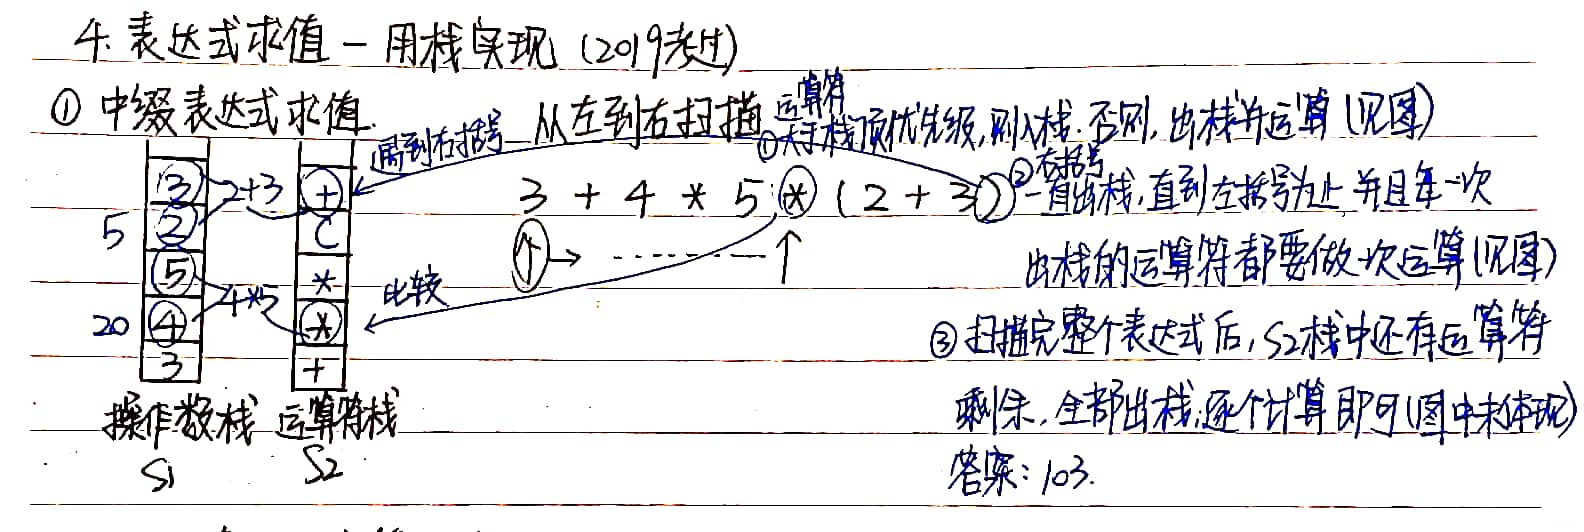 4. 表达式求值 — 用栈实现 (2019考过)
① 中缀表达式求值. 从左到右扫描 ①运算符大于栈顶优先级,则入栈.否则,出栈并运算(见图)
遇到右括号
3 + 4 * 5 * (2 + 3) ②右括号 一直出栈,直到左括号为止 并且每一次
出栈的运算符都要做一次运算(见图)
3 2+3 +
5 2 (
5 *
比较
20 4 4*5 *
3 +
③ 扫描完整个表达式后,S2栈中还有运算符
剩余,全部出栈,逐个计算即可(图中未体现)
操作数栈 运算符栈
S1 S2
答案: 103.